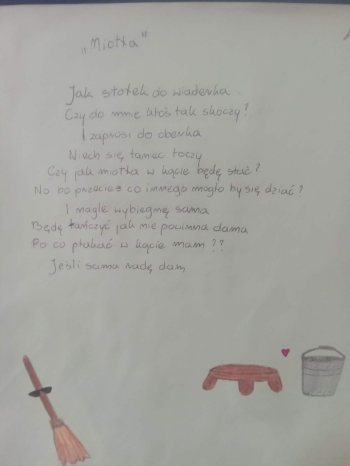 „Miotła"
Jak stołek do wiaderka
Czy do mnie ktoś tak skoczy?
I zaprosi do oberka
Niech się taniec toczy
Czy jak miotła w kącie będę stać?
No bo przecież co innego mogło by się dziać?
I nagle wybiegnę sama
Będę tańczyć jak nie powinna dama
Po co płakać w kącie mam ??
Jeśli sama radę dam